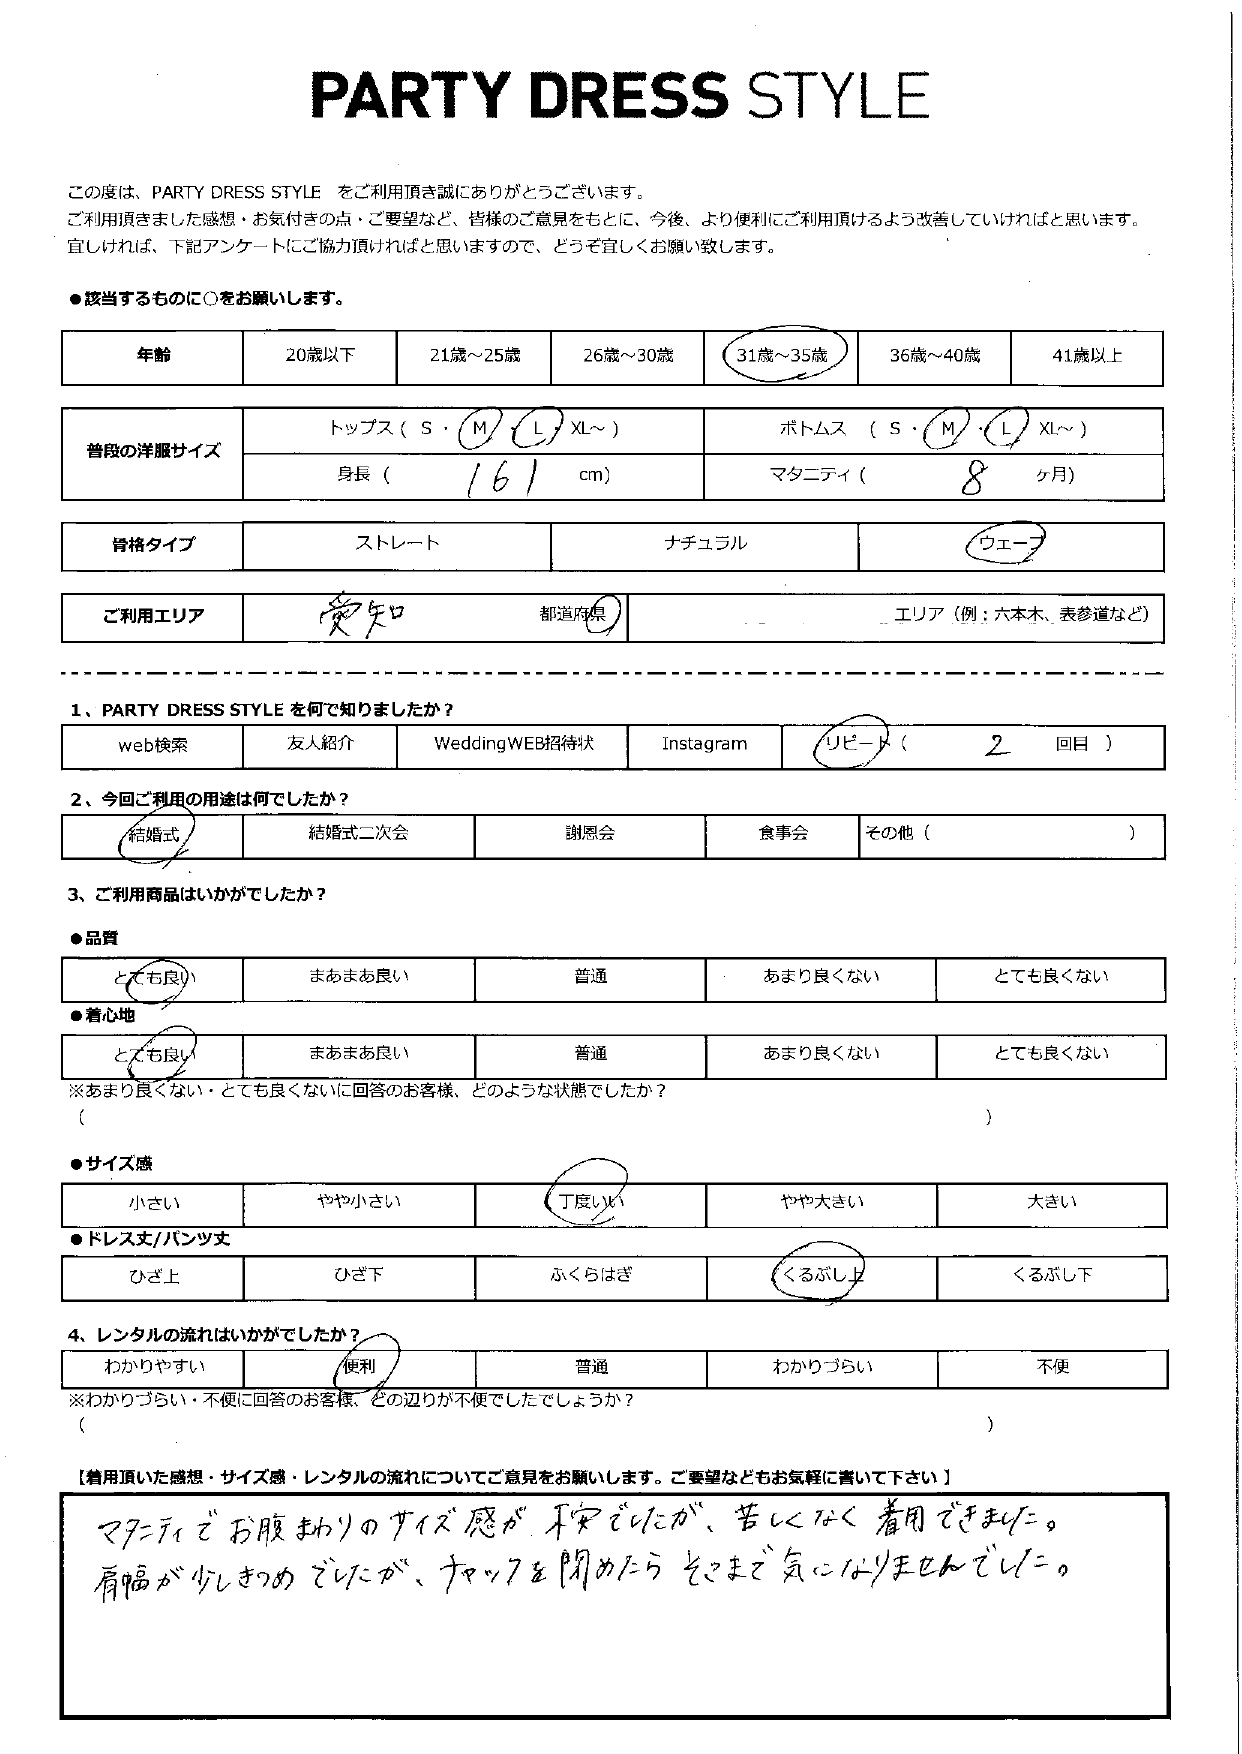 PARTY DRESS STYLE
この度は、PARTY DRESS STYLE をご利用頂き誠にありがとうございます。
ご利用頂きました感想・お気付きの点・ご要望など、皆様のご意見をもとに、今後、より便利にご利用頂けるよう改善していければと思います。
宜しければ、下記アンケートにご協力頂ければと思いますので、どうぞ宜しくお願い致します。
●該当するものに○をお願いします。
年齢 20歳以下 21歳～25歳 26歳～30歳 31歳～35歳 36歳～40歳 41歳以上
普段の洋服サイズ
トップス ( S ・ M ・ L ・ XL～ ) ボトムス ( S ・ M ・ L ・ XL～ )
身長 ( 161 cm) マタニティ ( 8 ヶ月)
骨格タイプ ストレート ナチュラル ウェーブ
ご利用エリア 愛知 都道府県 エリア（例：六本木、表参道など）
1、PARTY DRESS STYLE を何で知りましたか？
web検索 友人紹介 WeddingWEB招待状 Instagram リピート ( 2 回目 )
2、今回ご利用の用途は何でしたか？
結婚式 結婚式二次会 謝恩会 食事会 その他 ( )
3、ご利用商品はいかがでしたか？
●品質
とても良い まあまあ良い 普通 あまり良くない とても良くない
●着心地
とても良い まあまあ良い 普通 あまり良くない とても良くない
※あまり良くない・とても良くないに回答のお客様、どのような状態でしたか？
( )
●サイズ感
小さい やや小さい 丁度いい やや大きい 大きい
●ドレス丈/パンツ丈
ひざ上 ひざ下 ふくらはぎ くるぶし上 くるぶし下
4、レンタルの流れはいかがでしたか？
わかりやすい 便利 普通 わかりづらい 不便
※わかりづらい・不便に回答のお客様、どの辺りが不便でしたでしょうか？
( )
【着用頂いた感想・サイズ感・レンタルの流れについてご意見をお願いします。ご要望などもお気軽に書いて下さい 】
マタニティでお腹まわりのサイズ感が不安でしたが、苦しくなく着用できました。
肩幅が少しきつめでしたが、チャックを閉めたらそこまで気になりませんでした。